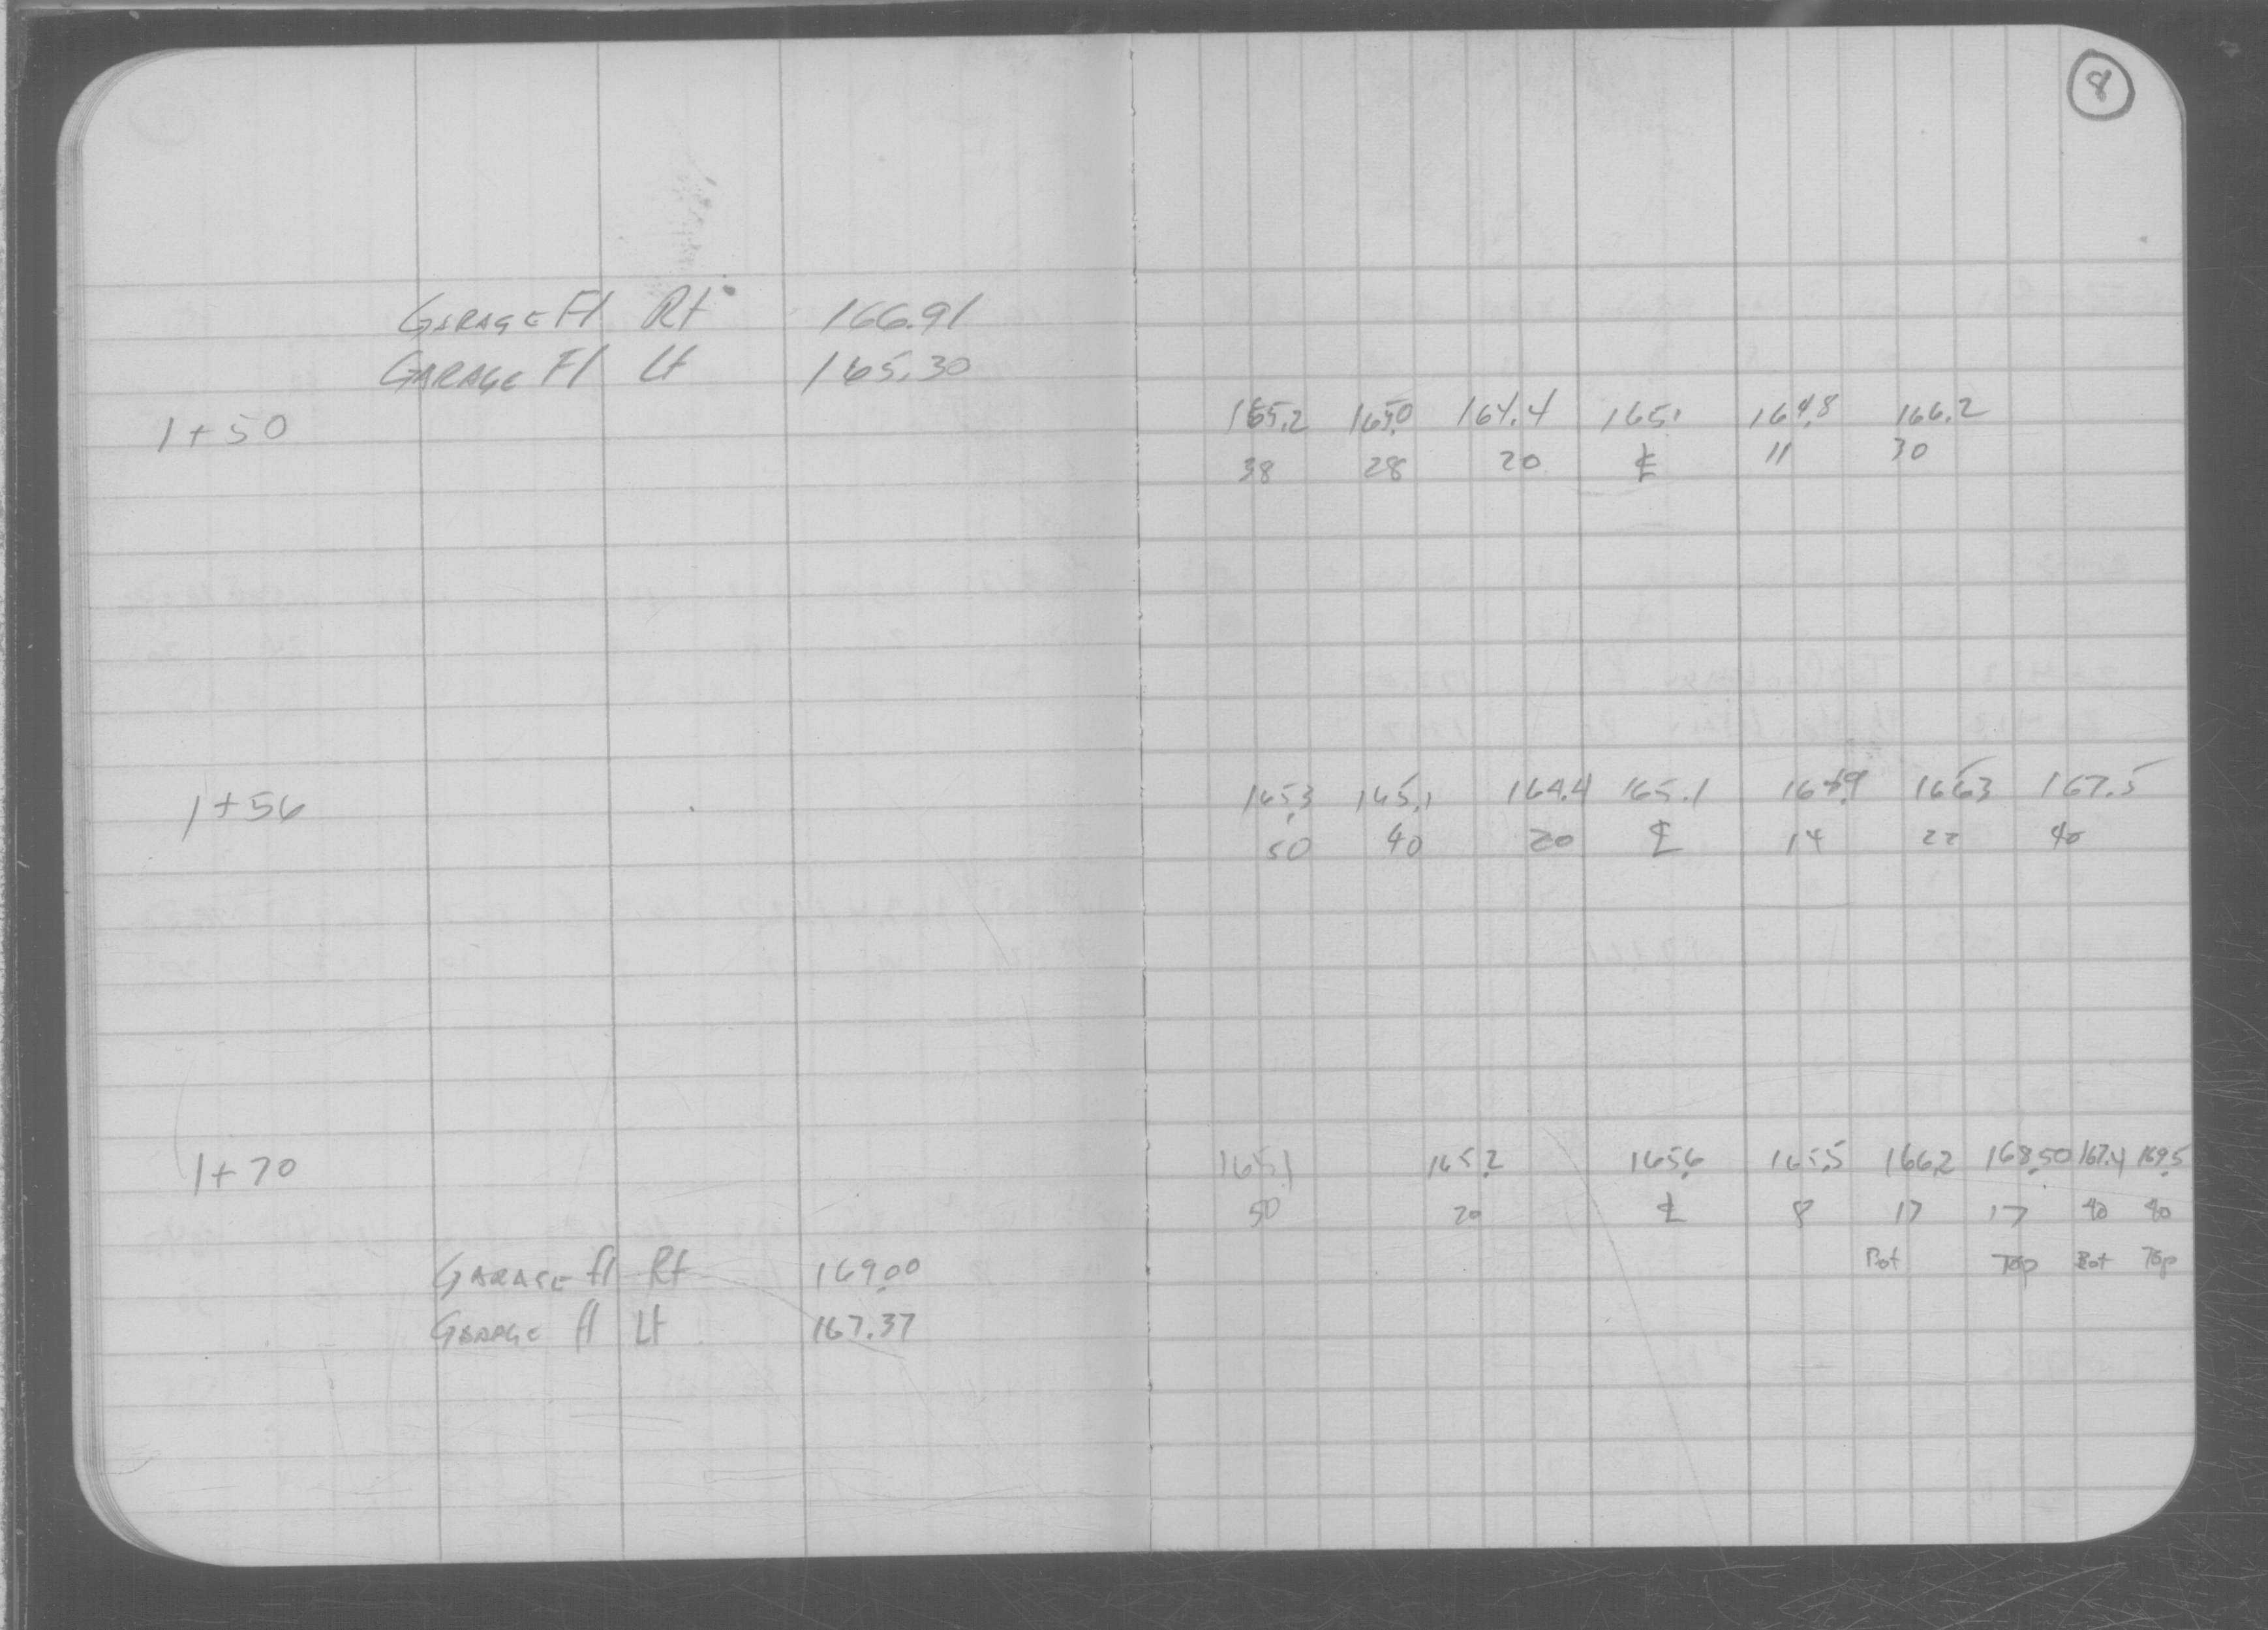 8
GARAGE Fl Rt 166.91
GARAGE Fl Lt 165.30
1+50 165.2 165.0 164.4 165.1 164.8 166.2
38 28 20 ℄ 11 30
1+56 165.3 165.1 164.4 165.1 164.9 166.3 167.5
50 40 20 ℄ 14 22 40
1+70 165.1 165.2 165.6 165.5 166.2 168.50 167.4 169.5
50 20 ℄ 8 17 17 40 40
Bot Top Bot Top
GARAGE fl Rt 169.00
GARAGE fl Lt 167.37